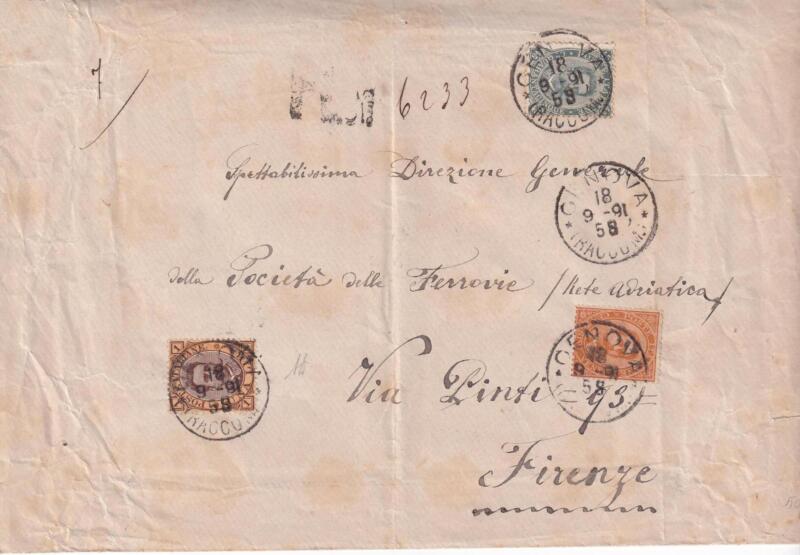 7
R 6233
GENOVA
18
9-91
5S
(RACCOM.)
Spettabilissima Direzione Generale
GENOVA
18
9-91
5S
(RACCOM.)
della Società delle Ferrovie (Rete Adriatica)
GENOVA
18
9-91
5S
1
18
9-91
5S
(RACCOM.)
Via Pinti 93=
Firenze